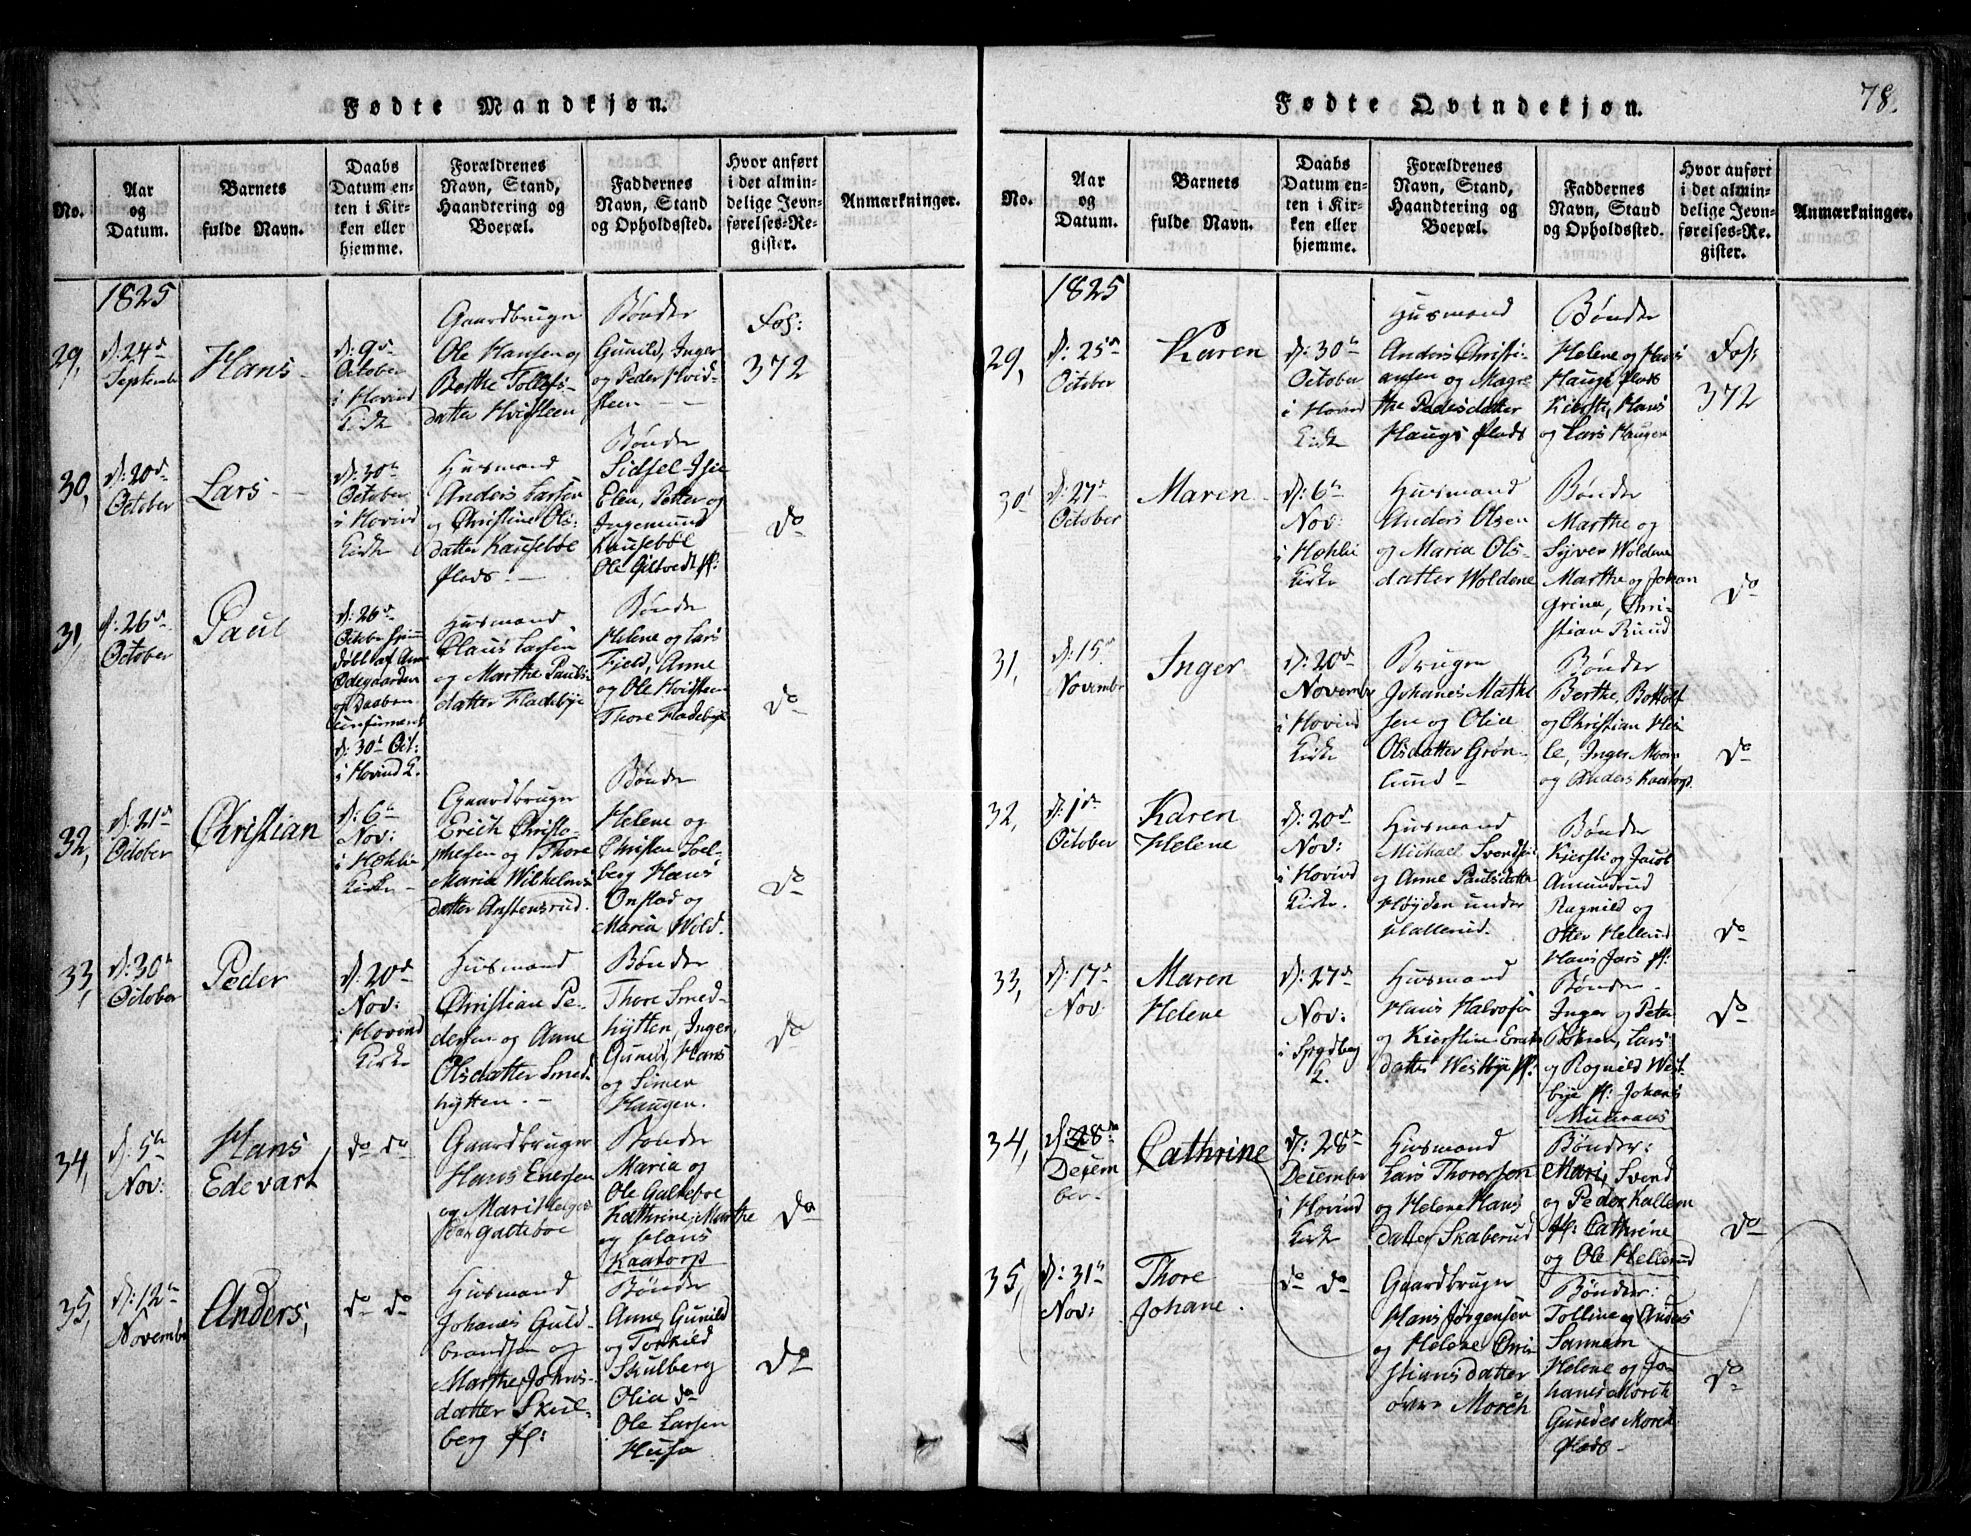 78.
Fødte Mandkjøn.
No.
Aar
og
Datum.
Barnets
fulde Navn.
Daabs
Datum en-
ten i Kir-
ken eller
hjemme.
Forældrenes
Navn, Stand,
Haandtering og
Boepæl.
Faddernes
Navn, Stand
og Opholdssted.
Hvor anført
i det almin-
delige Jevn-
førelses-Re-
gister.
Anmærkninger.
1825
29,
d: 24d
September
Hans -
d: 9d
October
i Hovind
Kirke
Gaardbruger
Ole Hansen og
Berthe Tollefs-
datter Hvidsteen
Bønder
Gunild, Inger
og Peder Hvid-
steen
Fol:
372
30,
d: 20d
October
Lars -
d: 30te
October
i Hovind
Kirke
Husmand
Anders Larsen
og Christine Ols-
datter Kausebøl
Plads. -
Bønder
Sidsel
Elen, Petter og
Ingemund
Kausebøl
Ole Giltvedt
do
31,
d: 26d
October
Paul
d: 26d
October
døbt af
Ødegaarden
og Daaben
d: 30d Oct:
i Hovind K.
Husmand
Claus Larsen
og Marthe Pauls-
datter Fladebye
Bønder
Helene og Lars
Fjeld, Anne
og Ole Hvidsteen
Thore Fladebye
do
32,
d: 21d
October
Christian
d: 6te
Nov:
i
Kirke -
Gaardbruger
Erich Christo-
phersen og Thore
Maria Wilhelms-
datter Anstensrud.
Bønder
Helene og
Christen Soel-
berg Hans
Onstad og
Maria Wold.
do
33,
d: 30te
October
Peder
d: 20d
Nov:
i Hovind
Kirke
Husmand
Christian Pe-
dersen og Anne
Olsdatter Smed-
hytten. -
Bønder
Thore Smed-
hytten, Inger,
Gunild, Hans
og Simen
Haugen.
do
34,
d: 5te
Nov:
Hans
Edevart
do do
Gaardbruger
Hans Enersen
og Mari
Galteboe
Bønder
Maria og
Ole Galteboe
Kathrine, Marthe
og Hans
Kaatorp
do
35,
d: 12te
November
Anders,
do do
Husmand
Johanes Guld-
brandsen og
Marthe Johns-
datter Skul-
berg Pl:
Bønder
Anne, Gunild
og Torkild
Skulberg
Olia do
Ole Larsen
do
Fødte Qvindekjøn.
No.
Aar
og
Datum.
Barnets
fulde Navn.
Daabs
Datum en-
ten i Kir-
ken eller
hjemme.
Forældrenes
Navn, Stand,
Haandtering og
Boepæl.
Faddernes
Navn, Stand
og Opholdssted.
Hvor anført
i det almin-
delige Jevn-
førelses-Re-
gister.
Anmærkninger.
1825
29,
d: 25d
October
Karen
d: 30te
October
i Hovind
Kirke
Husmand
Anders Christi-
ansen og Magre-
the Pedersdatter
Haugs Plads
Bønder
Helene og Hans
Haugs Plads
Kiersti, Hans
og Lars Hauger
Fol:
372
30,
d: 27d
October
Maren -
d: 6te
Nov:
i
Kirke
Husmand
Anders Olsen
og Maria Ols-
datter Woldene
Bønder
Marthe og
Syver Woldene
Marthe og Johan
Grina, Chri-
stian Ruud
do
31,
d: 15de
November
Inger
d: 20d
November
i Hovind
Kirke
Bruger
Johanes Mathe-
sen og Olia
Olsdatter Grøn-
lund -
Bønder
Berthe, Bottolf
og Christian
Inger
og Anders Kaatorp
do
32,
d: 1de
October
Karen
Helene
d: 20d
Nov:
i Hovind
Kirke.
Husmand
Michael Svendsen
og Anne Paulsdatter
Høyden under
Hallerud.
Bønder
Kiersti og Jacob
Amundrud
Ragnild og
Otter Hellerud
Hans
do
33,
d: 17d
Nov:
Maren
Helene
d: 27d
Nov:
i Spydberg
K.
Husmand
Hans Halvorsen
og Kierstine
datter Westbye Pl:
Bønder -
Inger og
Lars
og Ragnild West-
bye Pl: Johanes
do
34,
d: 28de
Decem-
ber.
Cathrine
d: 28d
December
i Hovind
Kirke
Husmand
Lars Thoresen
og Helene Hans
datter Skaberud
Bønder:
Mari, Svend
og Peder Kallem
Pl: Cathrine
og Ole Hellerud
do
35,
d: 31te
Nov:
Thore
Johane.
do do
Gaardbruger
Hans Jørgensen
og Helene Chri-
stians datter
Mørch
Bønder:
Tolline og Anders
Sannem
Helene og Jo-
hanes Mørch
Mørch
Plads -
do